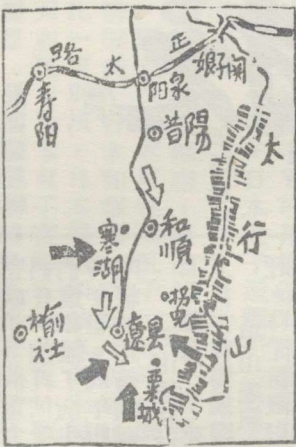 正太路
娘子關
寿阳
阳泉
昔陽
太行山
和順
寒湖
榆社
遼县
粟城